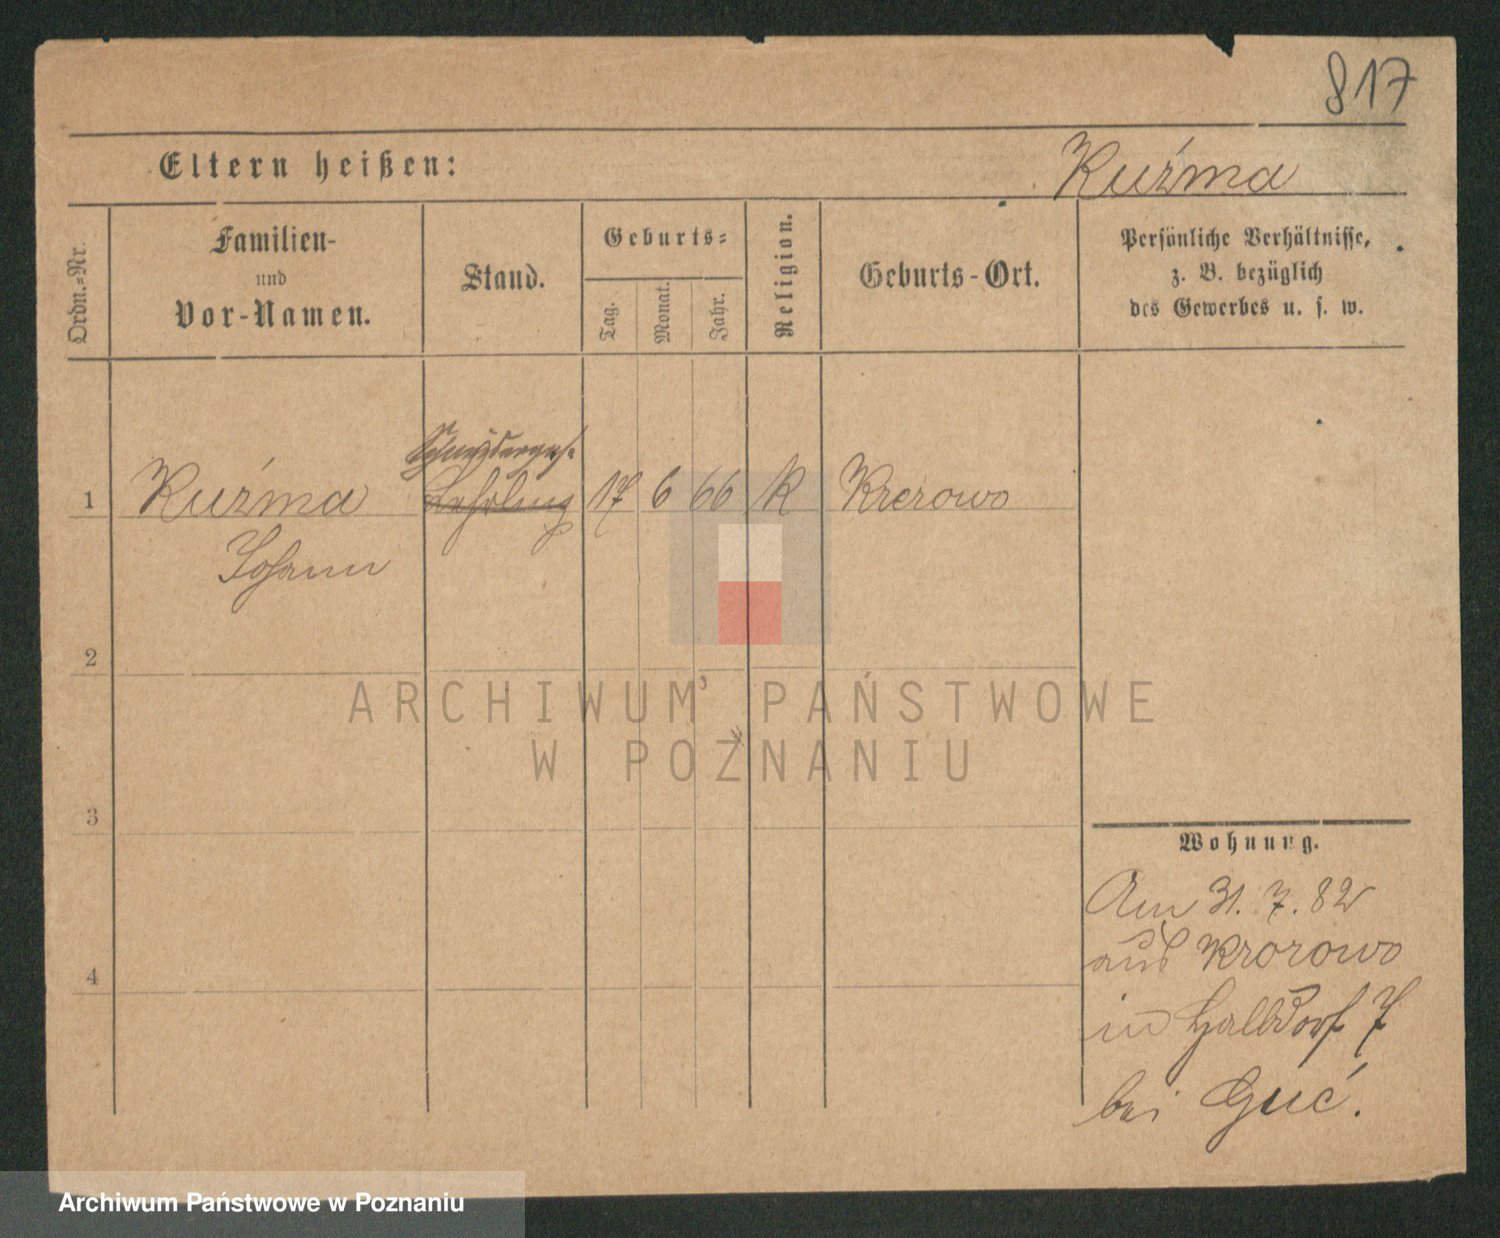 817
Eltern heißen:
Kuźma
Ordn.-Nr.
Familien-
und
Vor-Namen.
Stand.
Geburts-
Tag.
Monat.
Jahr.
Religion.
Geburts-Ort.
Persönliche Verhältnisse,
z. B. bezüglich
des Gewerbes u. s. w.
1 Kuźma Lehrling 17 6 66 K Krerowo
Johann
2
ARCHIWUM PAŃSTWOWE
W POZNANIU
3
4
Wohnung.
Am 31. 7. 82
aus Krorowo
in Halbdorf 7
bei Guć.
Archiwum Państwowe w Poznaniu